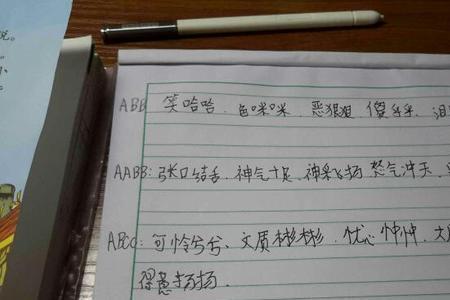 说。
小
ABB 笑哈哈、色咪咪、恶狠狠、傻乎乎、泪
AABB：张口结舌、神气十足、神采飞扬 怒气冲天、
ABCC：可怜兮兮、文质彬彬、忧心忡忡、
得意扬扬、